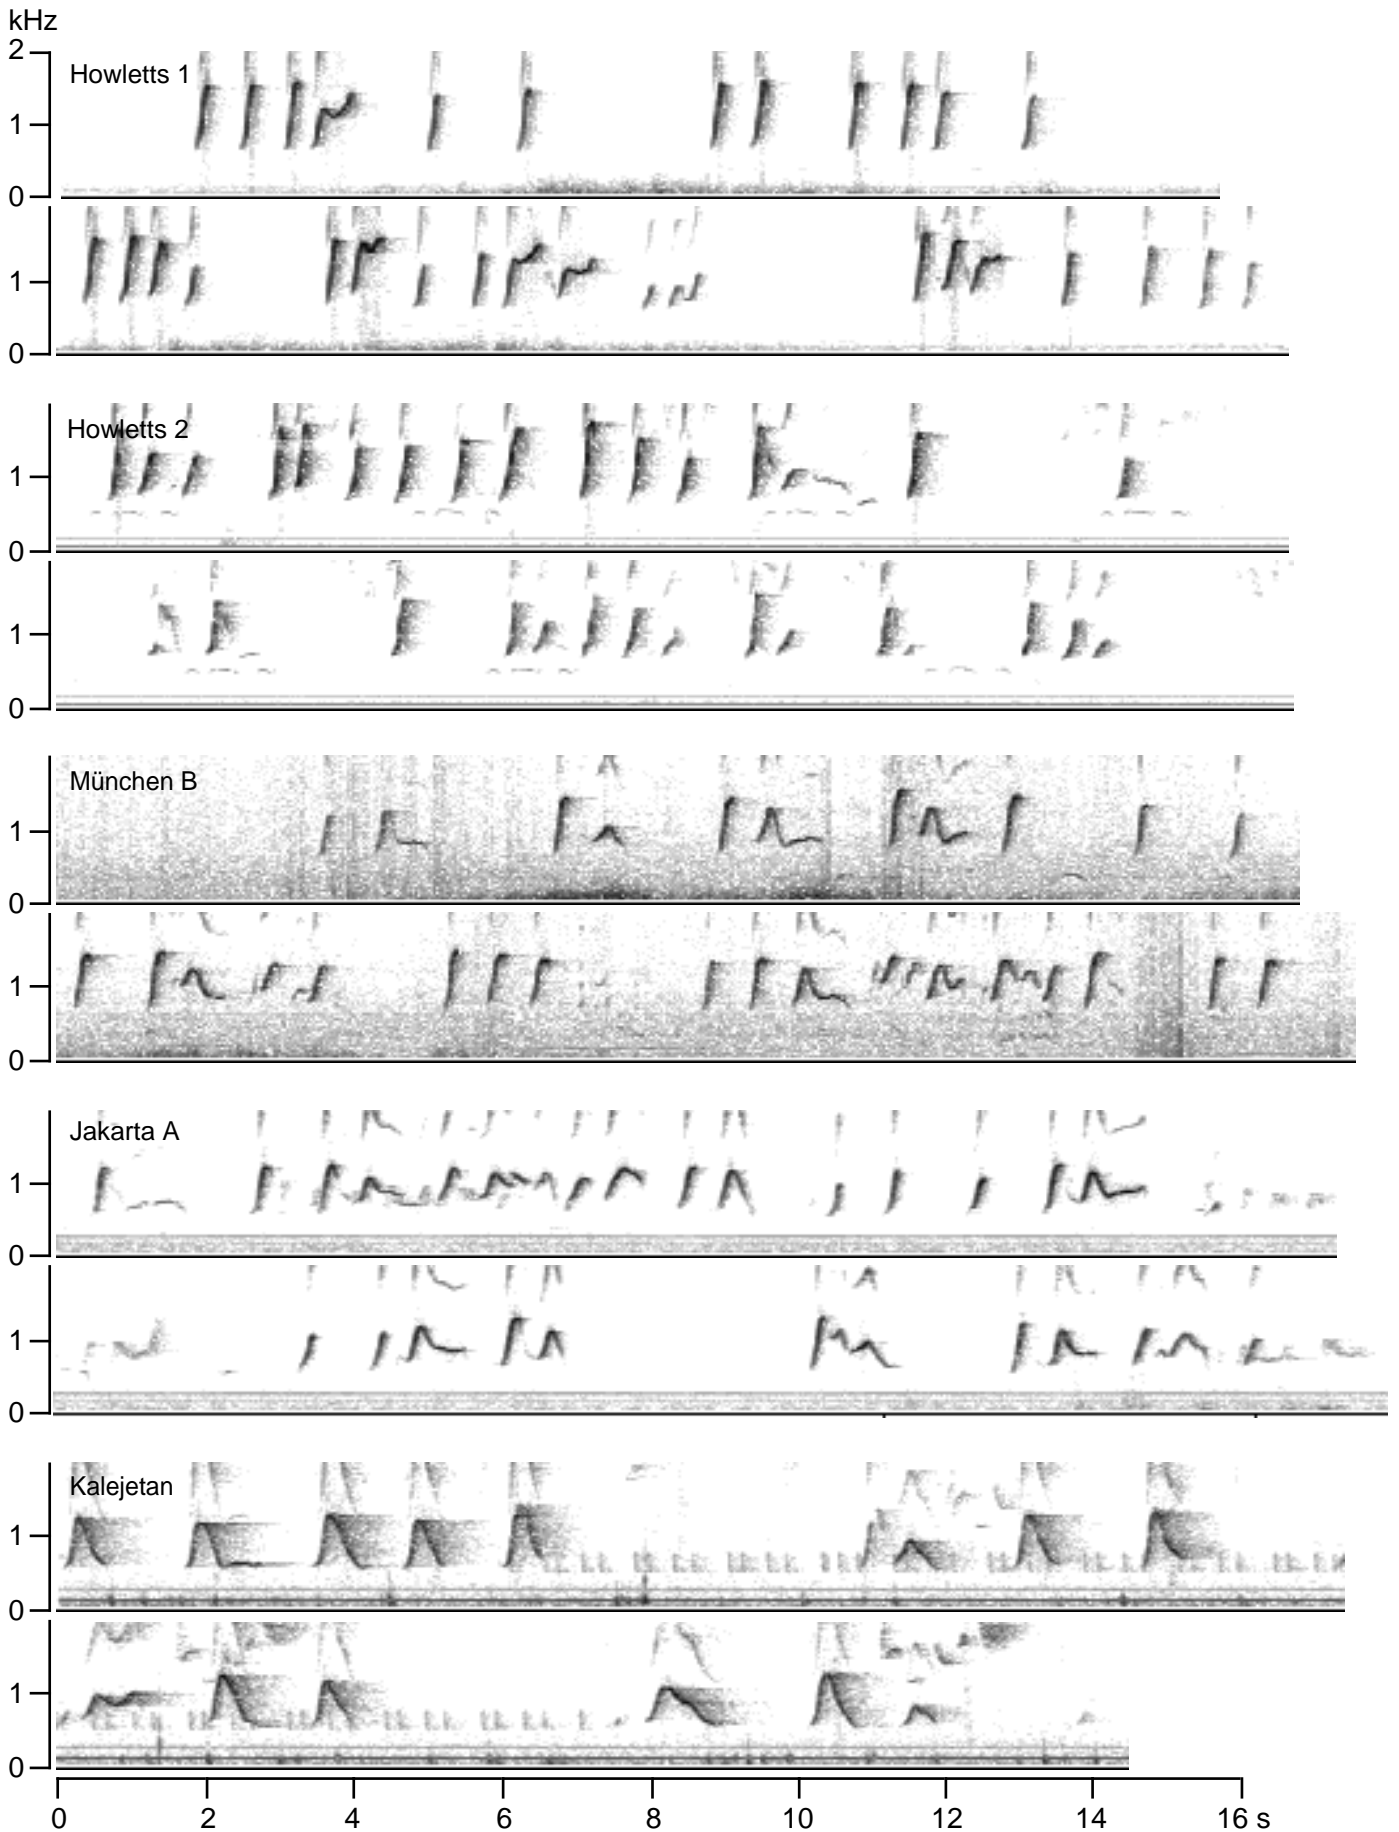 kHz
2
Howletts 1
1
0
1
0
Howletts 2
1
0
1
0
München B
1
0
1
0
Jakarta A
1
0
1
0
Kalejetan
1
0
1
0
0 2 4 6 8 10 12 14 16 s